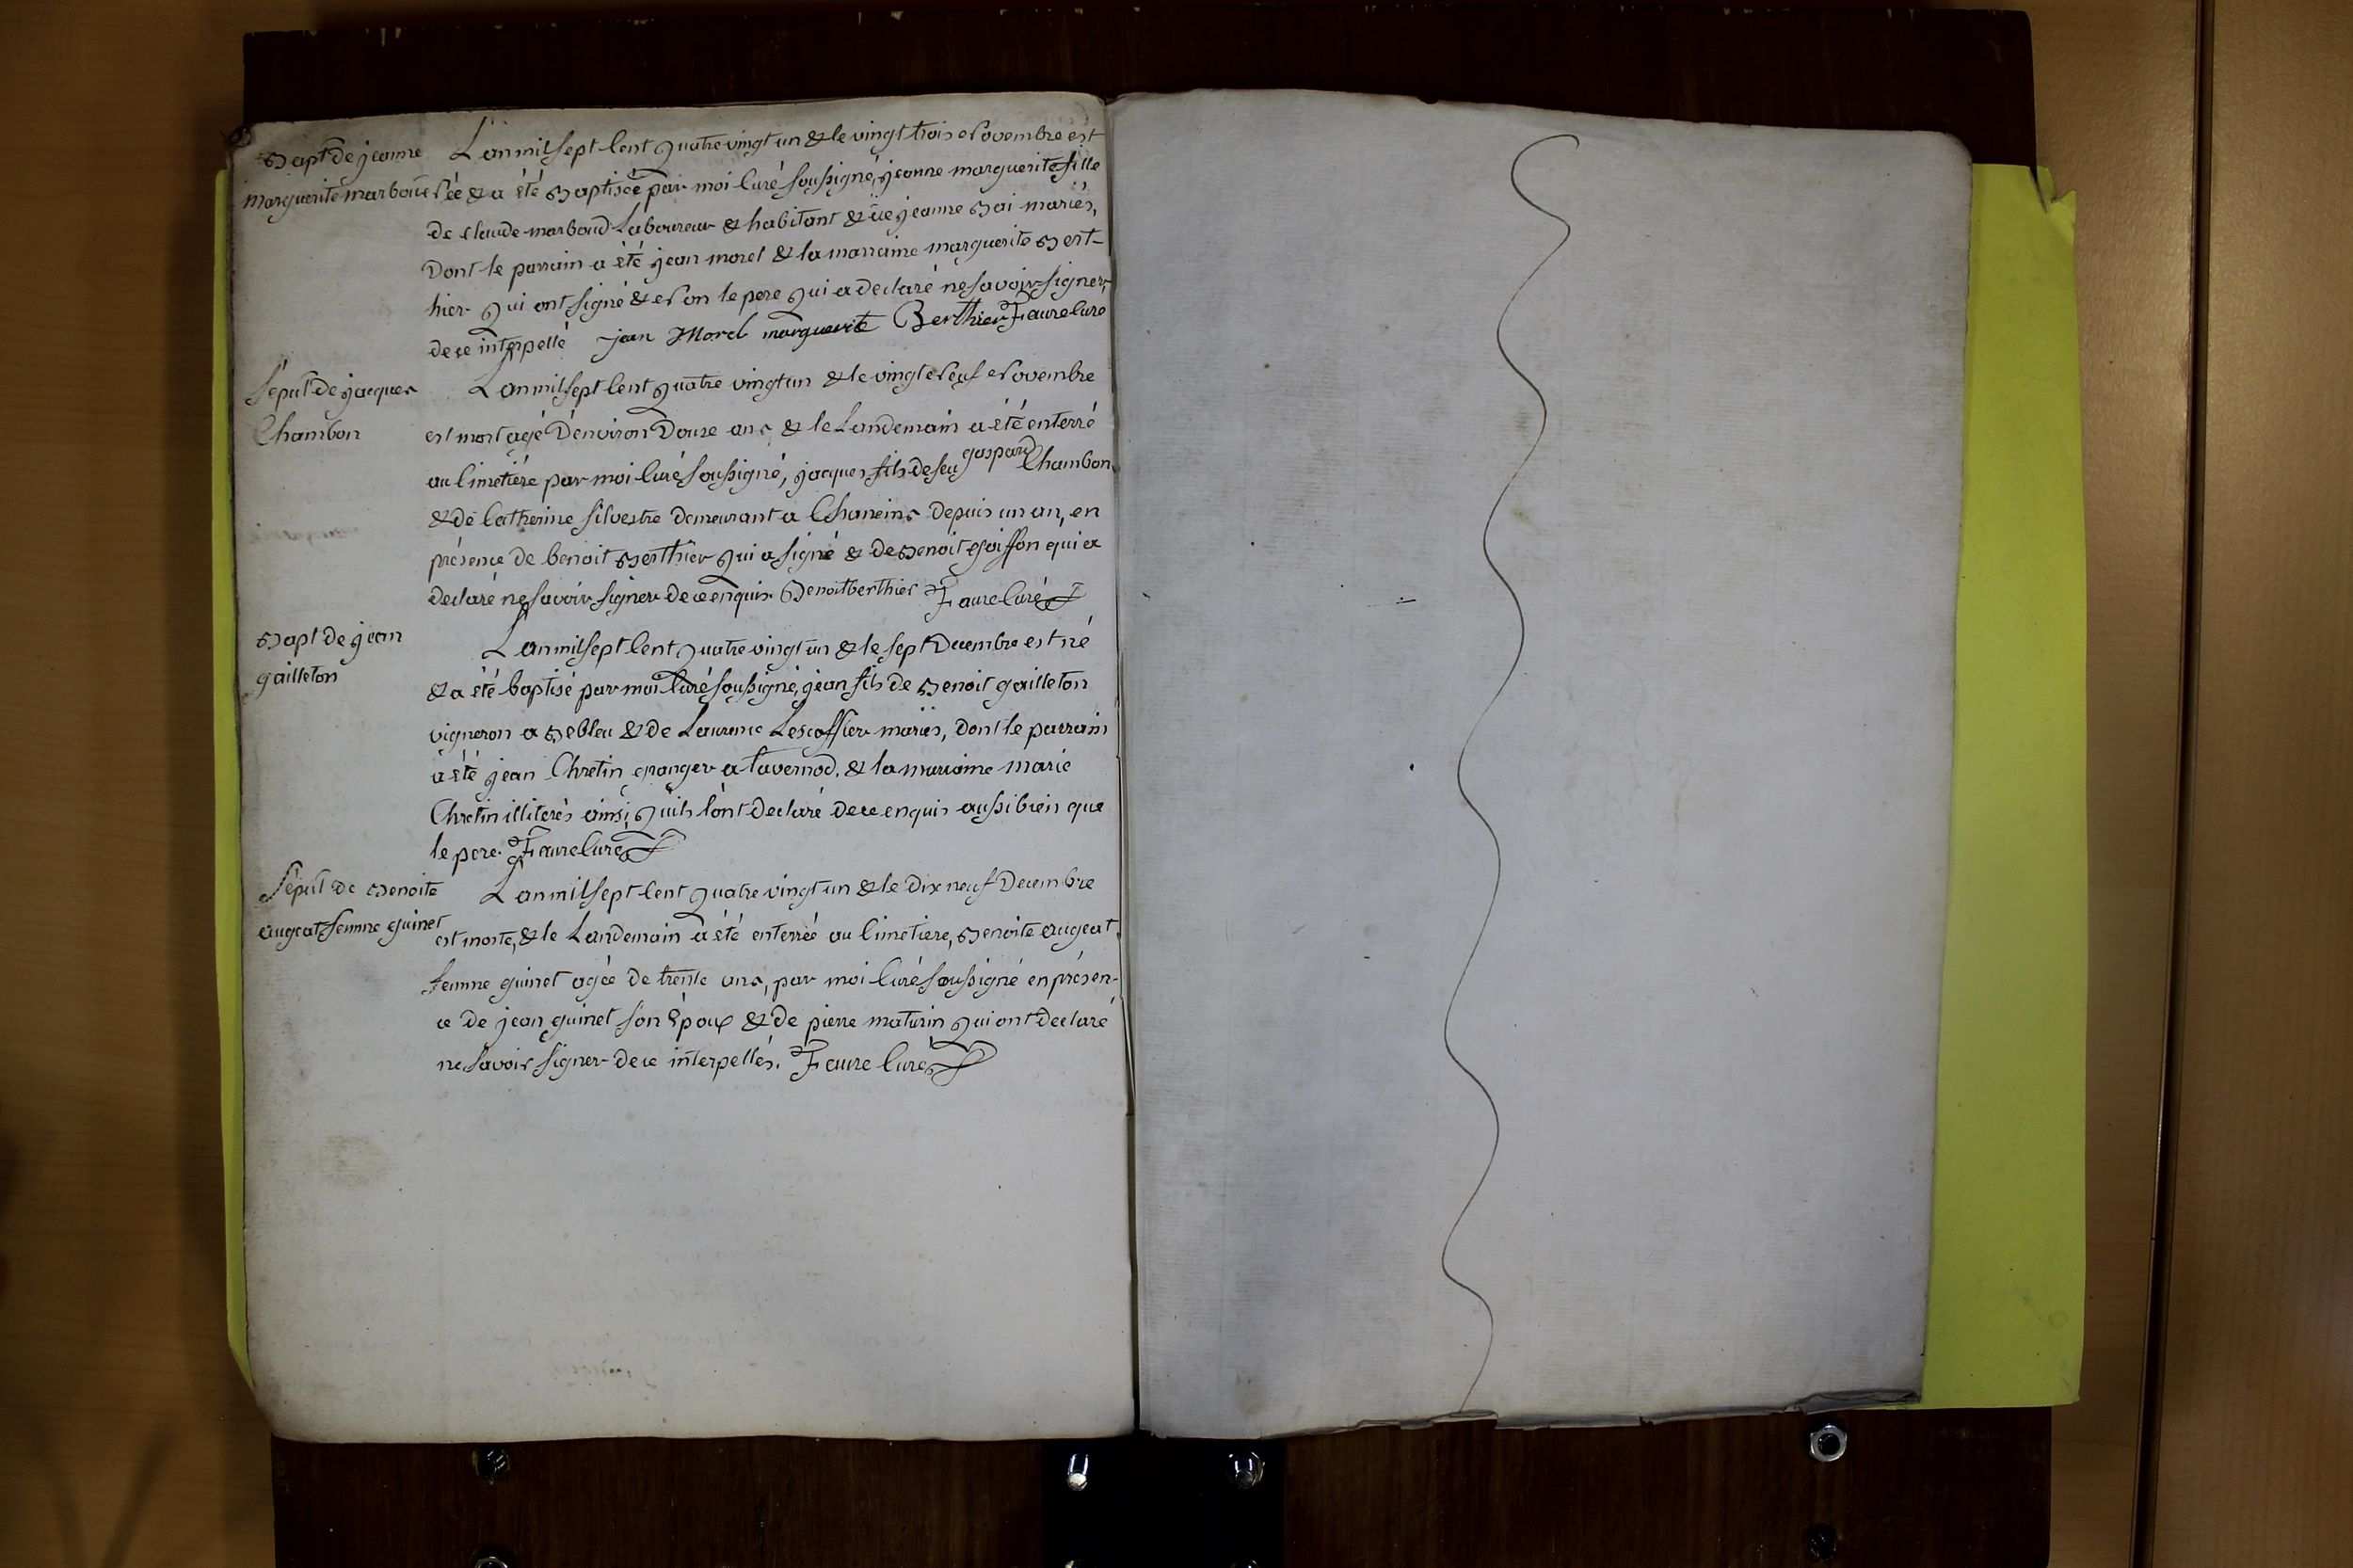 Bapt de jeanne
marguerite marboud
L'an mil sept Cent Quatre vingt un & le vingt trois Novembre est
Née & a été Baptisée par moi Curé soussigné, jeanne marguerite fille
de Claude marboud Laboureur & habitant & de jeanne Bai mariés,
Dont le parrain a été jean morel & la marraine marguerite Bert-
hier Qui ont signé & Non le pere Qui a declaré ne savoir signer,
de ce interpellé jean Morel marguerite Berthier Faure Curé
Sépul de jacques
Chambon
L'an mil sept Cent Quatre vingt un & le vingt Neuf Novembre
est mort agé D'environ Douze ans & le Landemain a été enterré
au Cimetière par moi Curé soussigné, jacques fils de feu gaspard Chambon
& de Catherine silvestre demeurant a Chaneins depuis un an, en
présence de benoit Berthier Qui a signé & de Benoit goiffon qui a
declaré ne savoir signer de ce enquis. Benoit berthier Faure Curé
Bapt de jean
gailleton
L'an mil sept Cent Quatre vingt un & le sept Decembre est né
& a été baptisé par moi Curé soussigné, jean fils de Benoit gailleton
vigneron a Bebleu & de Laurence Lescoffier mariés, dont le parrain
a été jean Chretin granger a tavernod, & la marraine marie
Chretin illiterés ainsi Quils l'ont declaré de ce enquis aussi bien que
le pere. Faure Curé
Sépul de Benoite
augeat femme guinet
L'an mil sept Cent Quatre vingt un & le dix neuf Decembre
est morte, & le Landemain a été enterrée au Cimetiere, Benoite augeat
femme guinet agée de trente ans, par moi Curé soussigné en présen-
ce de jean guinet son Epoux & de pierre maturin Qui ont declaré
ne savoir signer de ce interpellés. Faure Curé